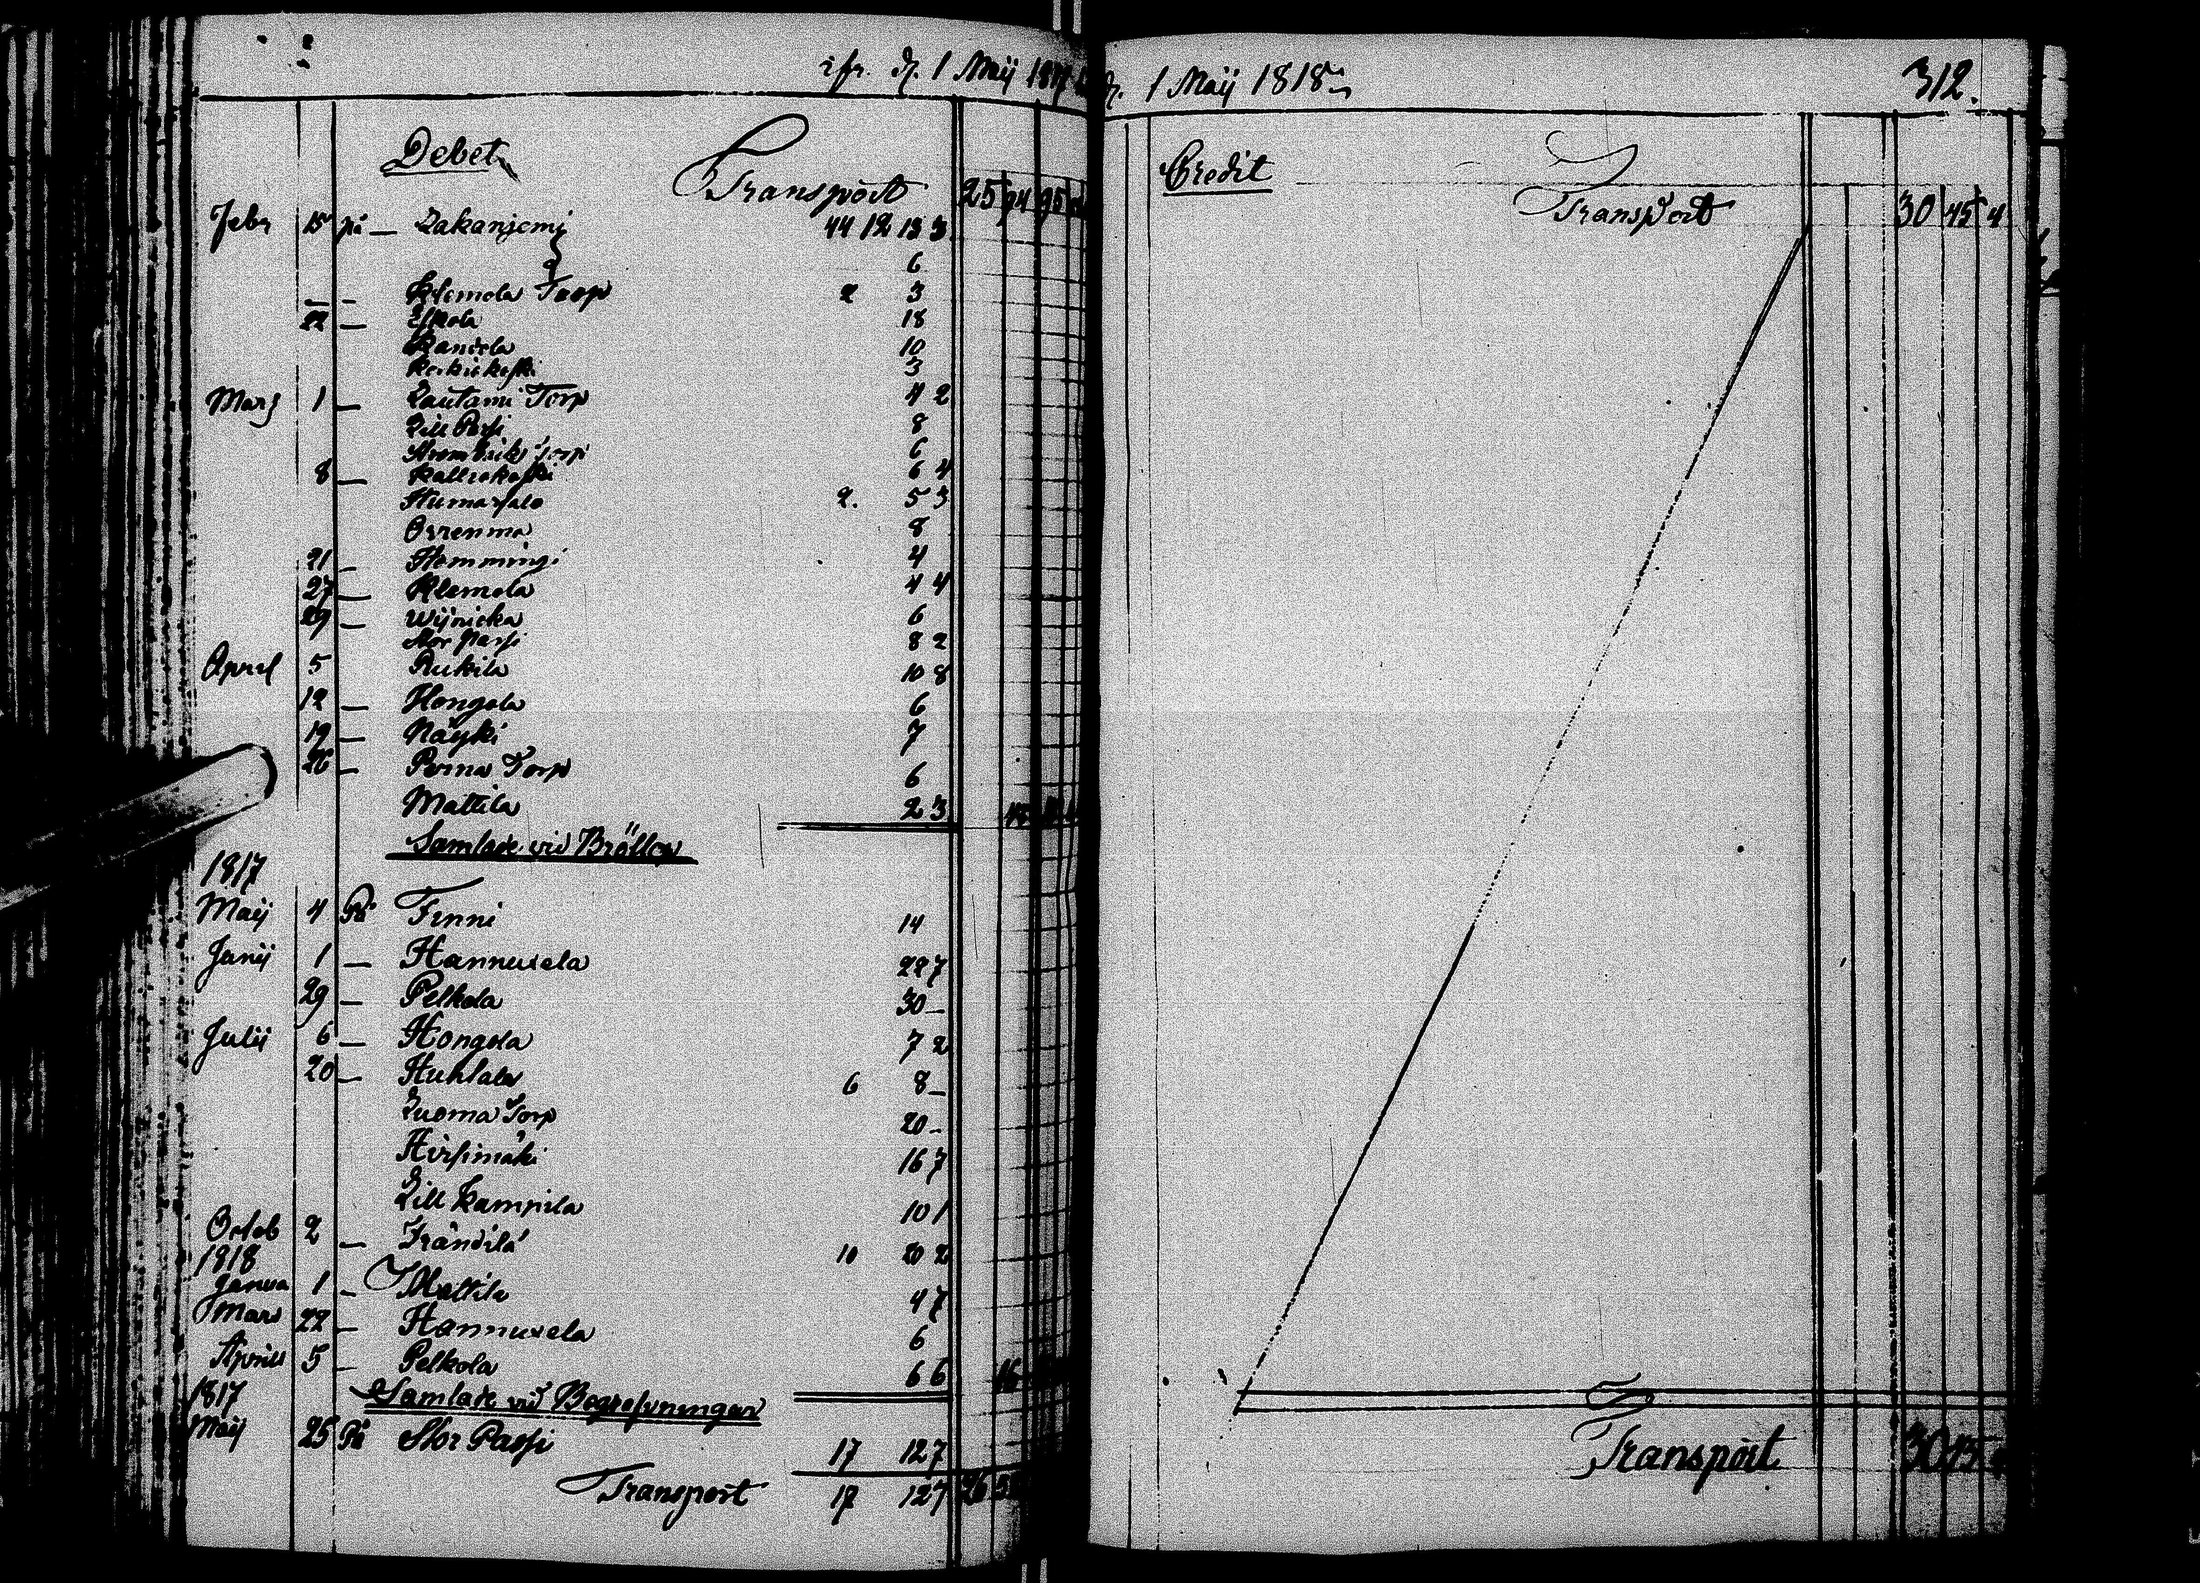 ifr. d. 1 Maij 1817
Debet
Transport 25
Febr 15 på Lakaniemi 44 12 13 3
6
Klemola Torp 2 3
22 Eskola 18
Kandela 10
3
Mars 1 Lautami Torp 4 2
Lill Passi 8
Torp 6
8 Kalliokoski 6 4
Humarsalo 2. 5 3
8
21 Hemmingi 4
27 Klemola 4 4
29 Wijnicka 6
Stor Passi 8 2
April 5 Rukila 10 8
12 Hongola 6
19 Näyki 7
26 Perna Torp 6
Mattila 2 3
Samlade vid Bröllop
1817
Maij 4 På Finni 14
Junij 1 Hannuxela 28 7
29 Pelkola 30
Julij 6 Hongola 7 2
20 Huhtala 6 8
Luoma Torp 20
Hirsimäki 16 7
Lill Kampila 10 1
Octob 2 Frändilä 10 20 2
1818
Janua 1 Mattila 4 7
Mars 22 Hannuxela 6
April 5 Pelkola 6 6 16
Samlade vid Begrafvningar
1817
Maij 25 På Stor Passi 17 12 7
Transport 17 12 7 26
d. 1 Maij 1818
312.
Credit
Transport 30 45 4
Transport 30 45